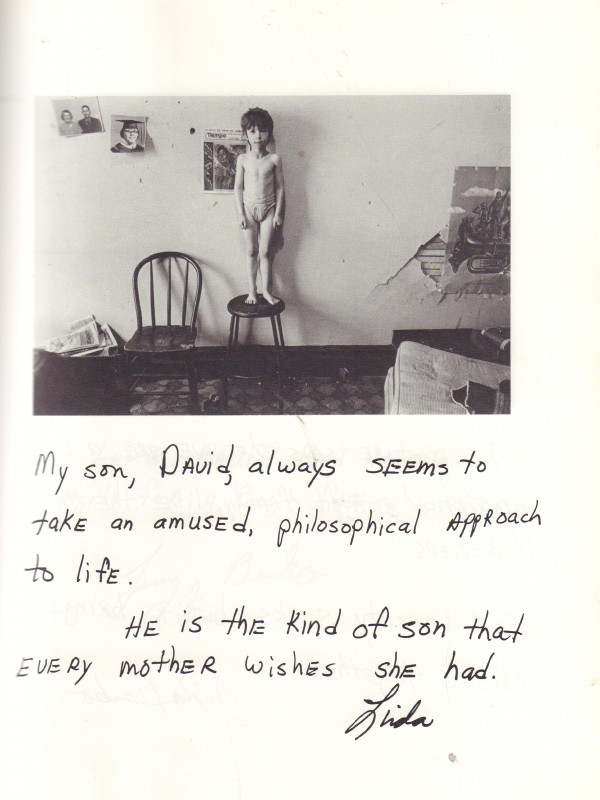 Tiempo
My son, David, always seems to
take an amused, philosophical approach
to life.
He is the kind of son that
every mother wishes she had.
Linda